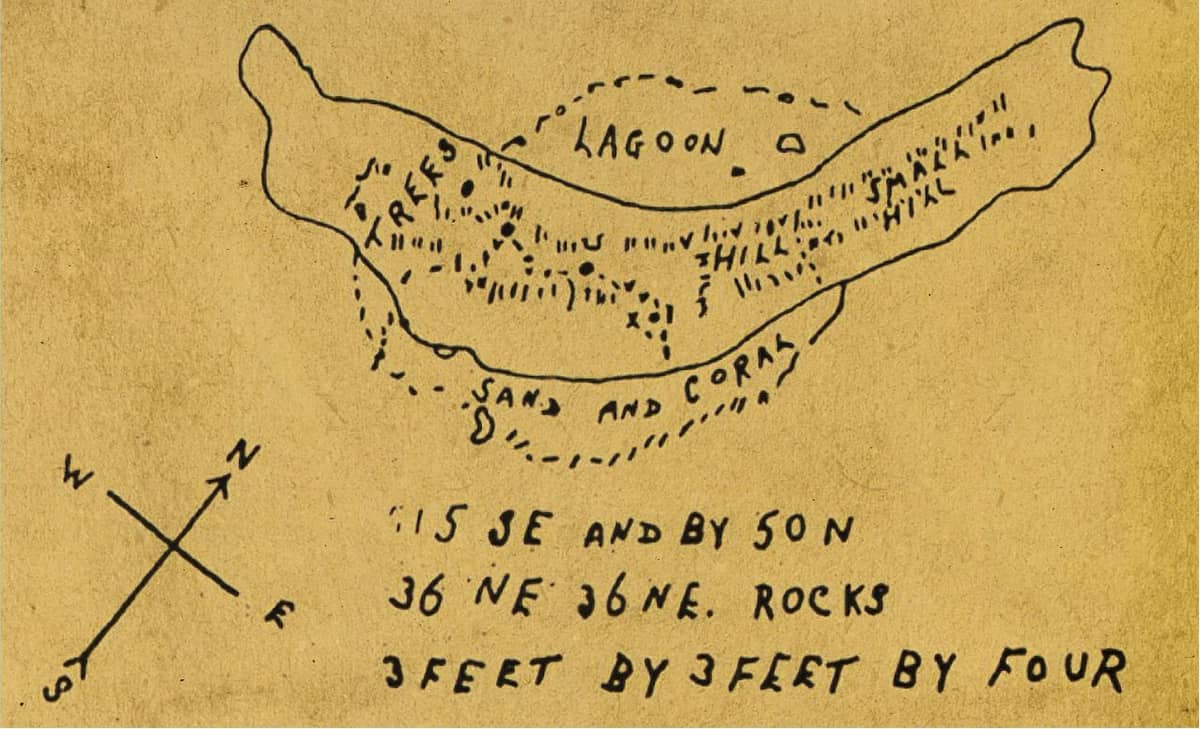 LAGOON
TREES
SMALL
HILL
HILL
X
SAND AND CORAL
N
W
E
S
115 SE AND BY 50 N
36 NE 36 NE. ROCKS
3 FEET BY 3 FEET BY FOUR